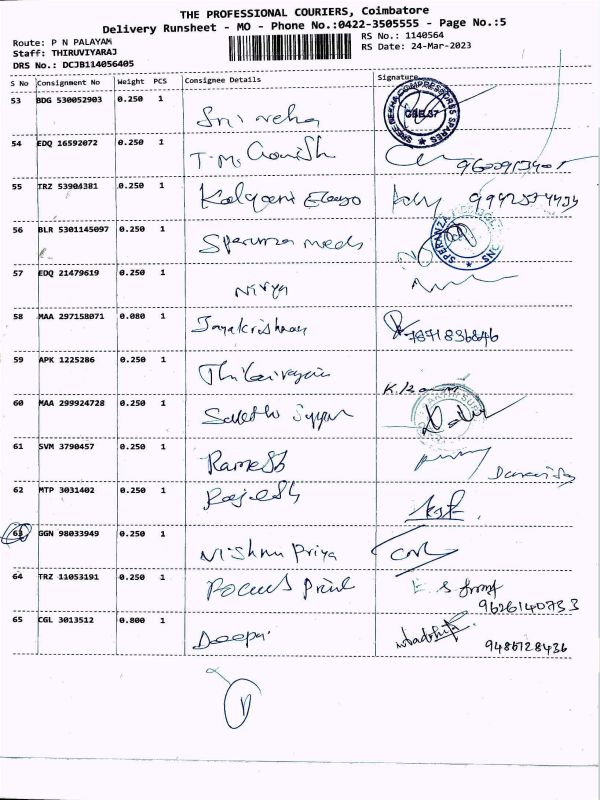 THE PROFESSIONAL COURIERS, Coimbatore
Delivery Runsheet - MO - Phone No.:0422-3505555 - Page No.:5
Route: P N PALAYAM
RS No.: 1140564
Staff: THIRUVIYARAJ
RS Date: 24-Mar-2023
DRS No.: DCJB114056405
S No Consignment No Weight PCS Consignee Details Signature
53 BDG 530052903 0.250 1 Sri reha
54 EDQ 16592072 0.250 1
55 TRZ 53904381 0.250 1 Kalyani
56 BLR 5301145097 0.250 1 Speranza meds
57 EDQ 21479619 0.250 1 Nivya
58 MAA 297158071 0.080 1 Jayakrishnan 7871836846
59 APK 1225286 0.250 1
60 MAA 299924728 0.250 1
61 SVM 3790457 0.250 1 Ramesh
62 MTP 3031402 0.250 1 Rajesh
63 GGN 98033949 0.250 1 Vishnu Priya
64 TRZ 11053191 0.250 1 Focus Print
9626140733
65 CGL 3013512 0.800 1 Deepa
9486128436